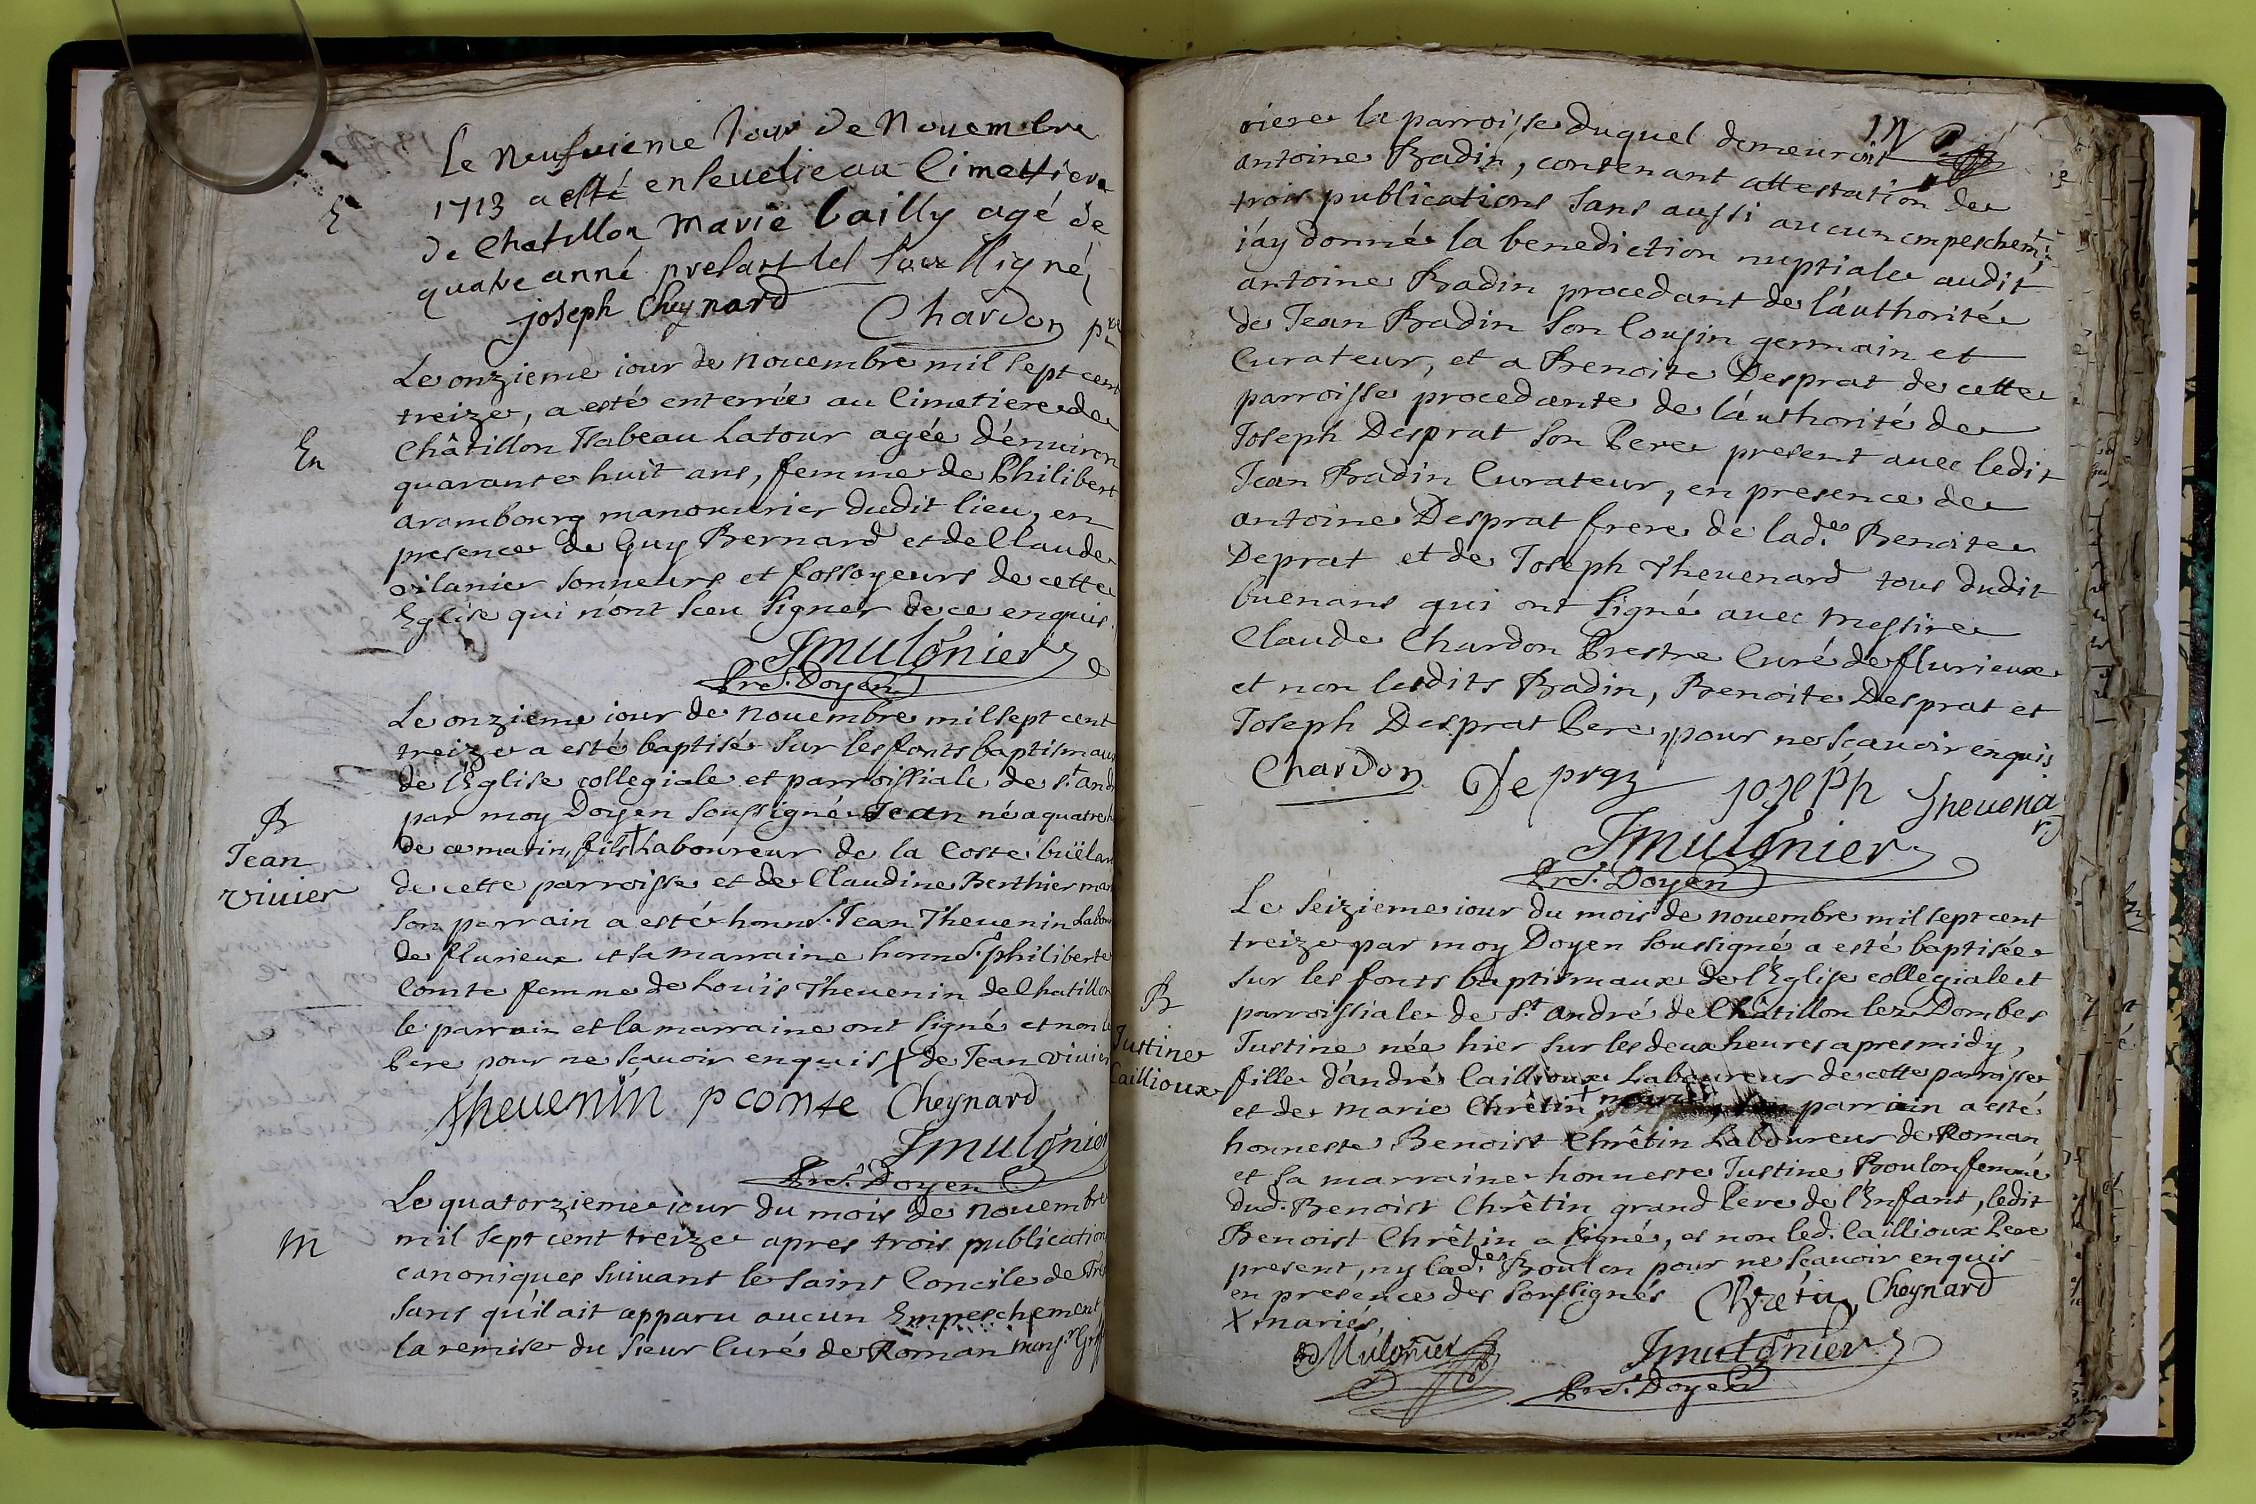 Le Neufuieme Jour de Nouembre
1713 a esté enseuelie au Cimettiere
E
de Chatillon Marie bailly agé de
quatre anné presant les sousigné
joseph Cheynard
Chardon pre
Le onzieme iour de nouembre mil sept cent
treize, a esté enterrée au Cimetiere de
Châtillon Isabeau Latour agée d'enuiron
En
quarante huit ans, femme de Philibert
arambourg manouurier dudit lieu, en
presence de Guy Bernard et de Claude
vilanier sonneurs et fossoyeurs de cette
Eglise qui n'ont sceu signer de ce enquis.
JMulonier
Pre. Doyen
Le onzieme iour de nouembre mil sept cent
treize a esté baptisé sur les fonts baptismaux
de l'Eglise collegiale et parroissiale de st. and
par moy Doyen soussigné Jean né a quatre h
B
Jean
viuier
de ce matin, fils + Laboureur de la Coste buëlan
de cette parroisse et de Claudine Berthier mar
son parrain a esté honn. Jean Theuenin Labou
de flurieux et sa marraine honne. philiberte
Comte femme de Louis Theuenin de Chatillon
le parrain et la marraine ont signé et non le
Pere pour ne scauoir enquis X de Jean viuier
Theuenin p conte Cheynard
JMulonier
Pre. Doyen
Le quatorzieme iour du mois de nouembre
M
mil sept cent treize apres trois publication
canoniques suiuant le saint Concile de Tre
sans qu'il ait apparu aucun Empeschement
la remise du sieur Curé de Roman
riere la parroisse duquel demeuroit
antoine Badin, contenant attestation de
trois publications sans aussi aucun empeschemt.
i'ay donné la benediction nuptiale audit
antoine Badin procedant de l'authorité
de Jean Badin son Cousin germain et
Curateur, et a Benoite Desprat de cette
parroisse procedante de l'authorité de
Joseph Desprat son Pere present auec ledit
Jean Badin Curateur, en presence de
antoine Desprat frere de lad. Benoite
Deprat et de Joseph Theuenard tous dudit
buenans qui ont signé auec messire
Claude Chardon Prestre Curé de flurieux
et non lesdits Badin, Benoite Desprat et
Joseph Desprat Pere, pour ne scauoir enquis.
Chardon Depraz joseph Theuenard
JMulonier
Pre. Doyen
Le seizieme iour du mois de nouembre mil sept cent
treize par moy Doyen soussigné a esté baptisée
sur les fonts baptismaux de l'Eglise collegiale et
parroissiale de st. andré de Châtillon lez Dombes
B
Justine
Caillioux
Justine née hier sur les deux heures apres midy,
fille d'andré Caillioux Laboureur de cette parroisse
et de marie Chrêtin + parrain a esté
honneste Benoist Chrêtin Laboureur de Roman
et sa marraine honneste Justine Boulon femme
dud. Benoist Chrêtin grand Pere de l'Enfant, ledit
Benoist Chrêtin a signé, et non led. Caillioux Pere
present, ny lad. Boulon pour ne scauoir enquis
en presence des soussignés Chrétin Cheynard
X mariés.
Mulonier
JMulonier
Pre. Doyen